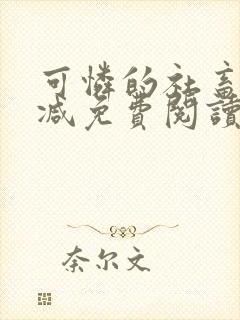 可憐的社畜
减免費閱讀
奈尔文